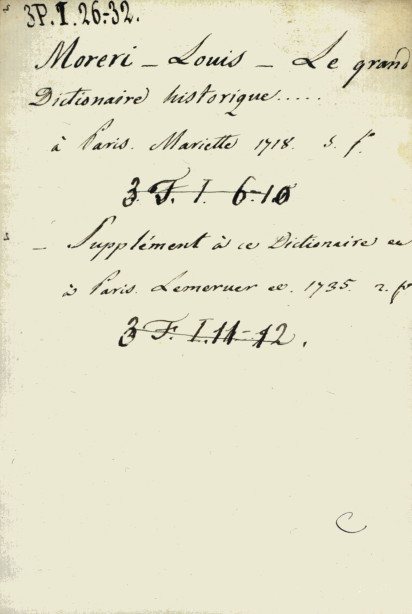 3P.I.26-32.
Moreri - Louis - Le grand
Dictionaire historique.....
à Paris. Mariette 1718. 5. f.
3. F. I. 6-10
- Supplément à ce Dictionaire &c
à Paris. Lemercier &c. 1735. 2. f
3 F. I.11-12.
C